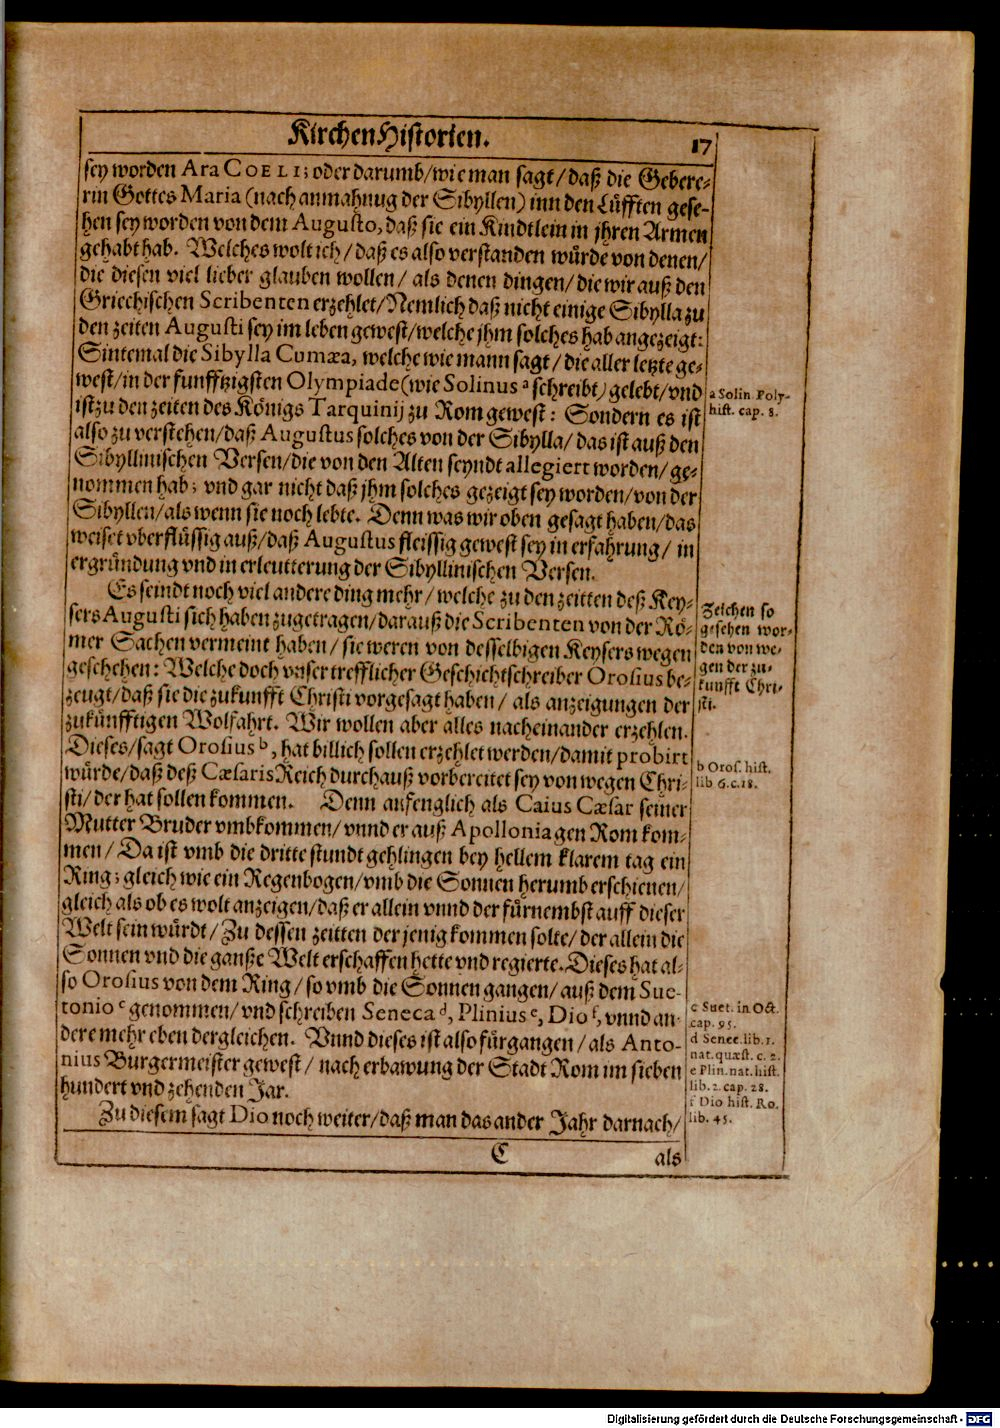 KirchenHistorien. 17
sey worden Ara COELI; oder darumb/wie man sagt/daß die Gebere-
rin Gottes Maria (nach anmahnug der Sibyllen) inn den Lüfften gese-
hen sey worden von dem Augusto, daß sie ein Kindtlein in jhren Armen
gehabt hab. Welches wolt ich/daß es also verstanden würde von denen/
die diesen viel lieber glauben wollen/ als denen dingen/die wir auß den
Griechischen Scribenten erzehlet/Nemlich daß nicht einige Sibylla zu
den zeiten Augusti sey im leben gewest/welche jhm solches hab angezeigt:
Sintemal die Sibylla Cumæa, welche wie mann sagt/die aller letzte ge-
west/in der funfftzigsten Olympiade (wie Solinus a schreibt) gelebt/vnd
ist zu den zeiten des Königs Tarquinij zu Rom gewest: Sondern es ist
also zu verstehen/daß Augustus solches von der Sibylla/ das ist auß den
Sibyllinischen Versen/die von den Alten seyndt allegiert worden/ ge-
nommen hab; vnd gar nicht daß jhm solches gezeigt sey worden/von der
Sibyllen/als wenn sie noch lebte. Denn was wir oben gesagt haben/das
weiset vberflüssig auß/daß Augustus fleissig gewest sey in erfahrung/ in
ergründung vnd in erleutterung der Sibyllinischen Versen.
Es seindt noch viel andere ding mehr/welche zu den zeitten deß Key-
sers Augusti sich haben zugetragen/darauß die Scribenten von der Rö-
mer Sachen vermeint haben/ sie weren von desselbigen Keysers wegen
geschehen: Welche doch vnser trefflicher Geschichtschreiber Orosius be-
zeugt/daß sie die zukunfft Christi vorgesagt haben/ als anzeigungen der
zukünfftigen Wolfahrt. Wir wollen aber alles nacheinander erzehlen.
Dieses/sagt Orosius b, hat billich sollen erzehlet werden/damit probirt
würde/daß deß Cæsaris Reich durchauß vorbereitet sey von wegen Chri-
sti/der hat sollen kommen. Denn anfenglich als Caius Cæsar seiner
Mutter Bruder vmbkommen/vnnd er auß Apollonia gen Rom kom-
men/ Da ist vmb die dritte stundt gehlingen bey hellem klarem tag ein
Ring; gleich wie ein Regenbogen/vmb die Sonnen herumb erschienen/
gleich als ob es wolt anzeigen/daß er allein vnnd der fürnembst auff dieser
Welt sein würdt/Zu dessen zeitten der jenig kommen solte/der allein die
Sonnen vnd die gantze Welt erschaffen hette vnd regierte. Dieses hat al-
so Orosius von dem Ring/so vmb die Sonnen gangen/auß dem Sue-
tonio c genommen/vnd schreiben Seneca d, Plinius e, Dio f, vnnd an-
dere mehr eben dergleichen. Vnnd dieses ist also fürgangen/als Anto-
nius Burgermeister gewest/ nach erbawung der Stadt Rom im sieben
hundert vnd zehenden Jar.
Zu diesem sagt Dio noch weiter/daß man das ander Jahr darnach/
C als
a Solin. Poly-
hist. cap. 8.
Zeichen so
gesehen wor-
den von we-
gen der zu-
kunfft Chri-
sti.
b Oros. hist.
lib 6. c. 18.
c Suet. in Oct.
cap. 95.
d Senec. lib. 1.
nat. quæst. c. 2.
e Plin. nat. hist.
lib. 2. cap. 28.
f Dio hist. Ro.
lib. 45.
Digitalisierung gefördert durch die Deutsche Forschungsgemeinschaft - DFG